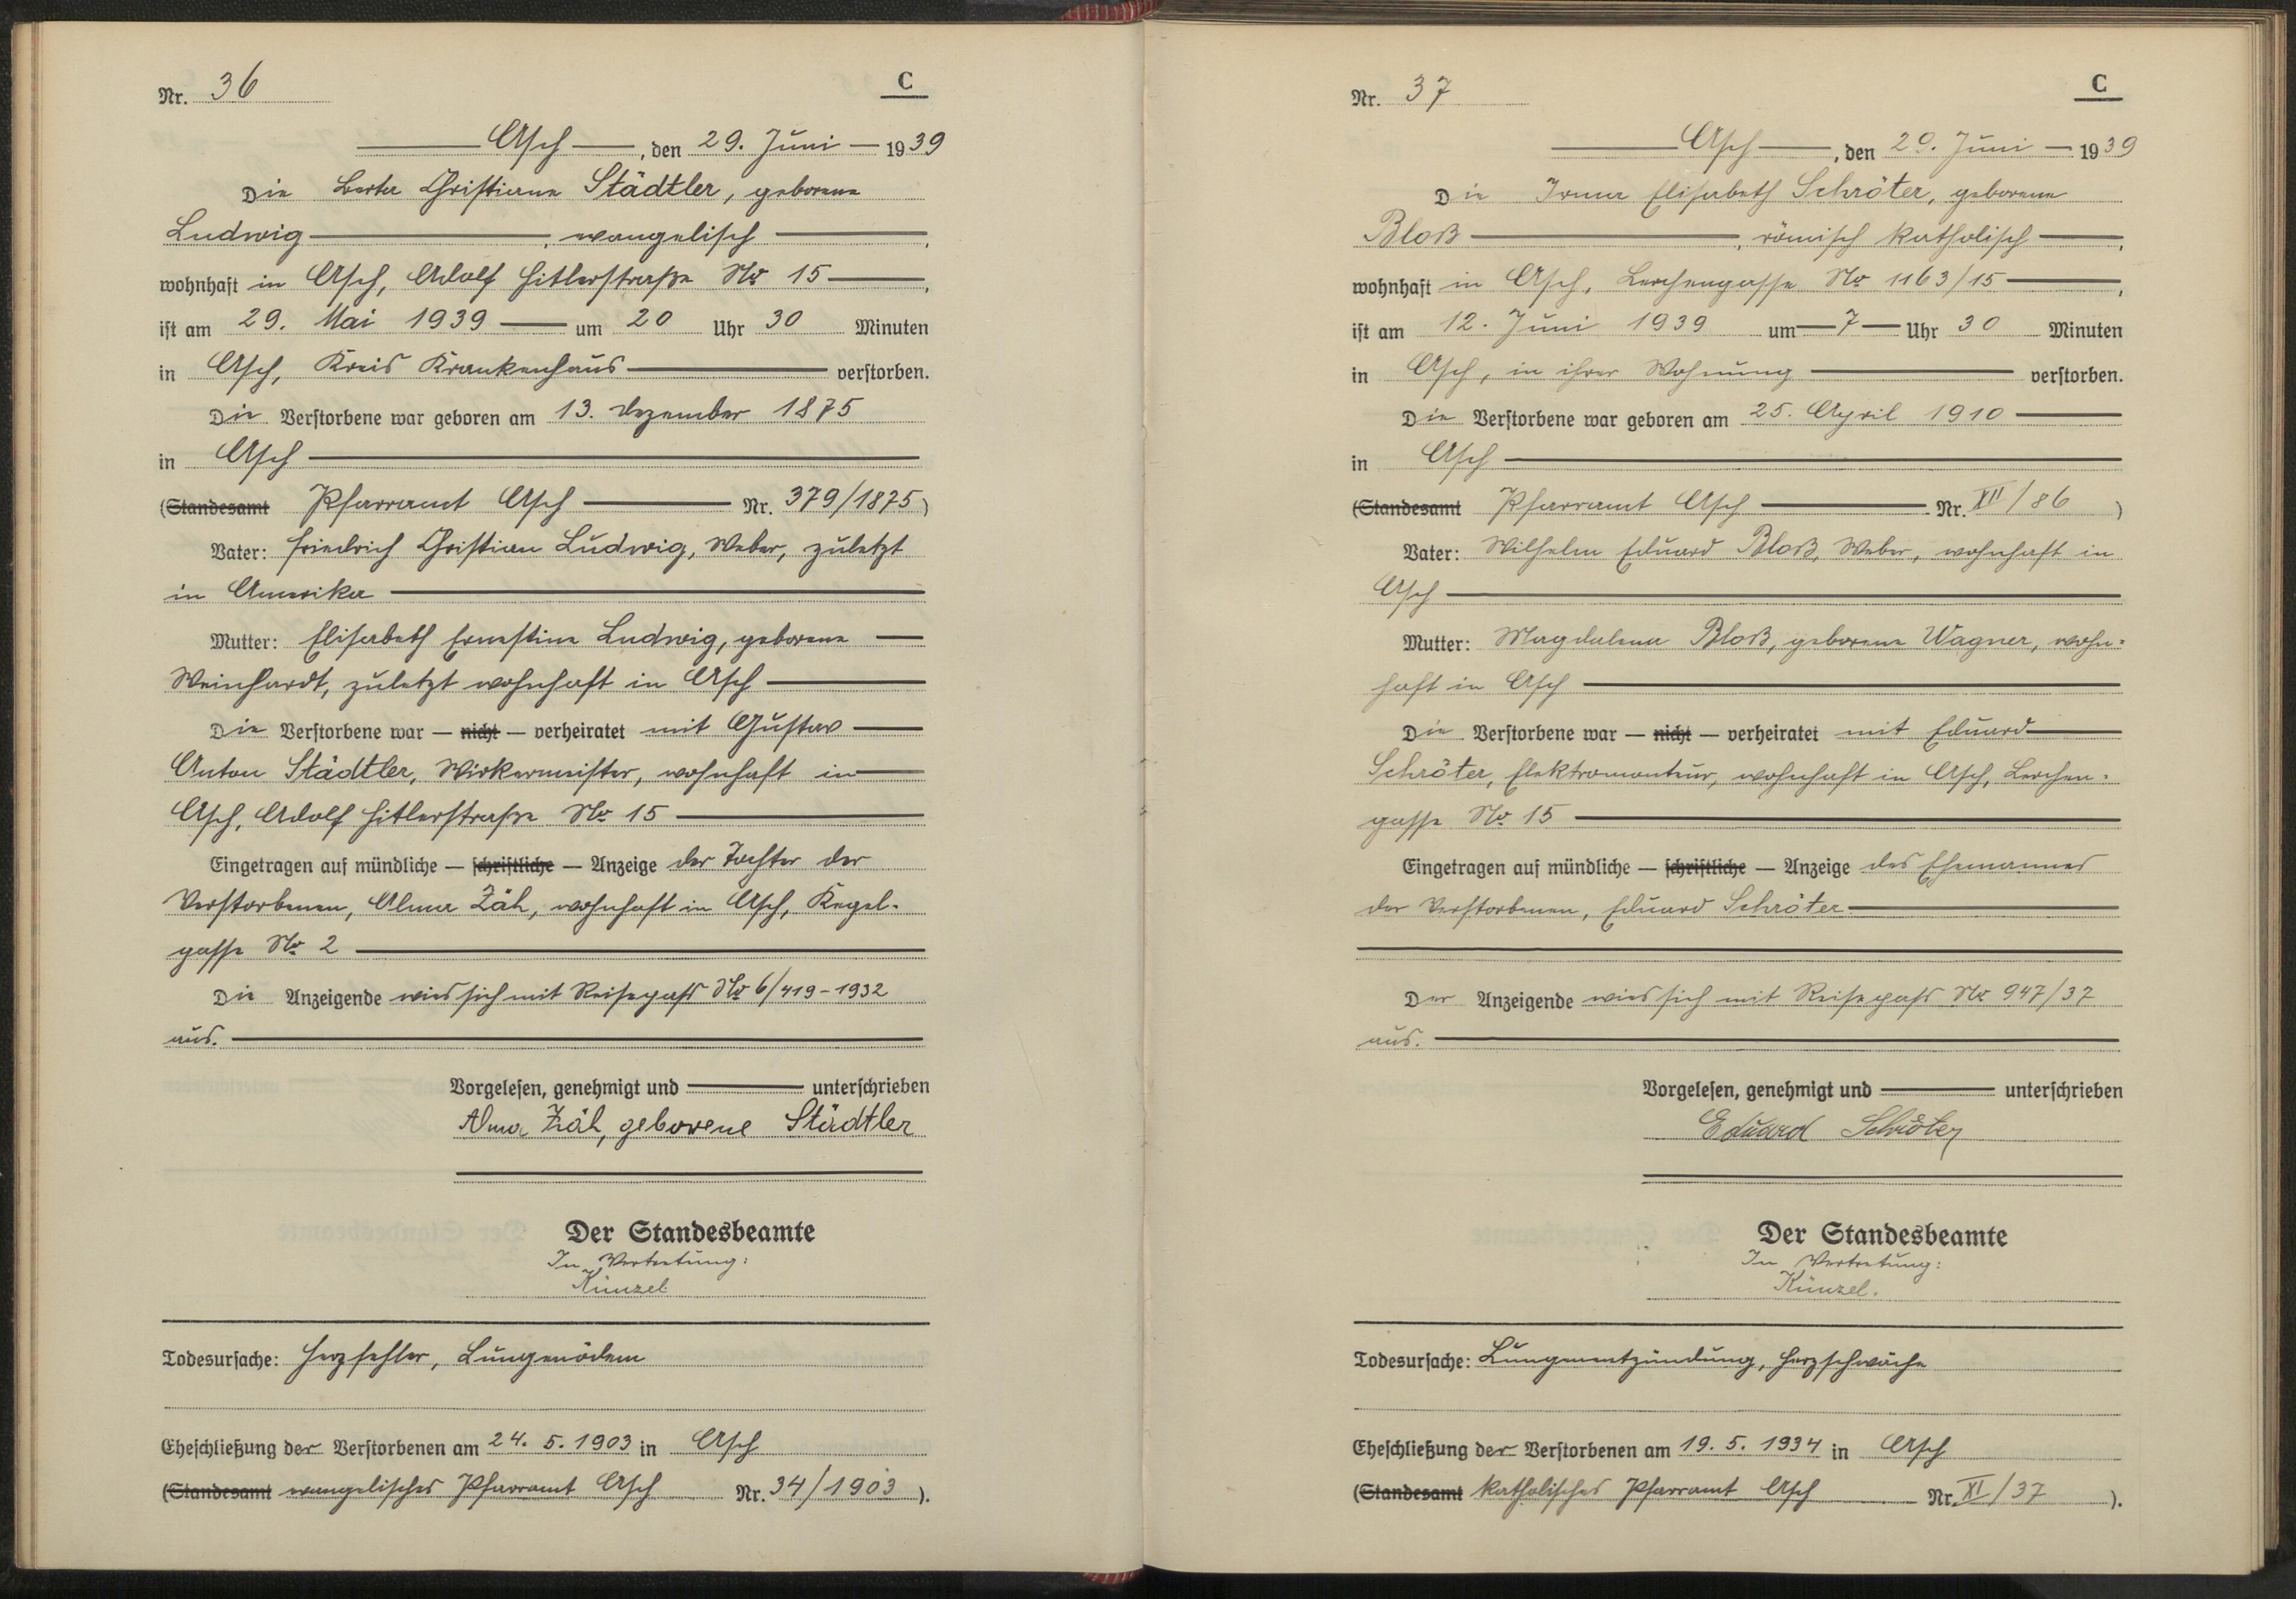 Nr. 36
C
Asch, den 29. Juni 1939
Die Berta Christiane Städtler, geborene
Ludwig, evangelisch,
wohnhaft in Asch, Adolf Hitlerstraße No 15,
ist am 29. Mai 1939 um 20 Uhr 30 Minuten
in Asch, Kreis Krankenhaus verstorben.
Die Verstorbene war geboren am 13. Dezember 1875
in Asch
(Standesamt Pfarramt Asch Nr. 379/1875)
Vater: Friedrich Christian Ludwig, Weber, zuletzt
in Amerika
Mutter: Elisabeth Ernestine Ludwig, geborene
Weinhardt, zuletzt wohnhaft in Asch
Die Verstorbene war — nicht — verheiratet mit Gustav
Anton Städtler, Wirkermeister, wohnhaft in
Asch, Adolf Hitlerstraße No 15
Eingetragen auf mündliche — schriftliche — Anzeige der Tochter der
Verstorbenen, Alma Zäh, wohnhaft in Asch, Kegel-
gasse No 2
Die Anzeigende wies sich mit Reisepass No 6/419-1932
aus.
Vorgelesen, genehmigt und unterschrieben
Alma Zäh, geborene Städtler
Der Standesbeamte
In Vertretung:
Künzel
Todesursache: Herzfehler, Lungenödem
Eheschließung der Verstorbenen am 24. 5. 1903 in Asch
(Standesamt evangelisches Pfarramt Asch Nr. 34/1903).
Nr. 37
C
Asch, den 29. Juni 1939
Die Irma Elisabeth Schröter, geborene
Bloß, römisch katholisch,
wohnhaft in Asch, Lerchengasse No 1163/15,
ist am 12. Juni 1939 um 7 Uhr 30 Minuten
in Asch, in ihrer Wohnung verstorben.
Die Verstorbene war geboren am 25. April 1910
in Asch
(Standesamt Pfarramt Asch Nr. XII/86)
Vater: Wilhelm Eduard Bloß, Weber, wohnhaft in
Asch
Mutter: Magdalena Bloß, geborene Wagner, wohn=
haft in Asch
Die Verstorbene war — nicht — verheiratet mit Eduard
Schröter, Elektromonteur, wohnhaft in Asch, Lerchen=
gasse No 15
Eingetragen auf mündliche — schriftliche — Anzeige des Ehemannes
der Verstorbenen, Eduard Schröter
Der Anzeigende wies sich mit Reisepass No 947/37
aus.
Vorgelesen, genehmigt und unterschrieben
Eduard Schröter
Der Standesbeamte
In Vertretung:
Künzel.
Todesursache: Lungenentzündung, Herzschwäche
Eheschließung der Verstorbenen am 19. 5. 1934 in Asch
(Standesamt katholisches Pfarramt Asch Nr. XI/37).